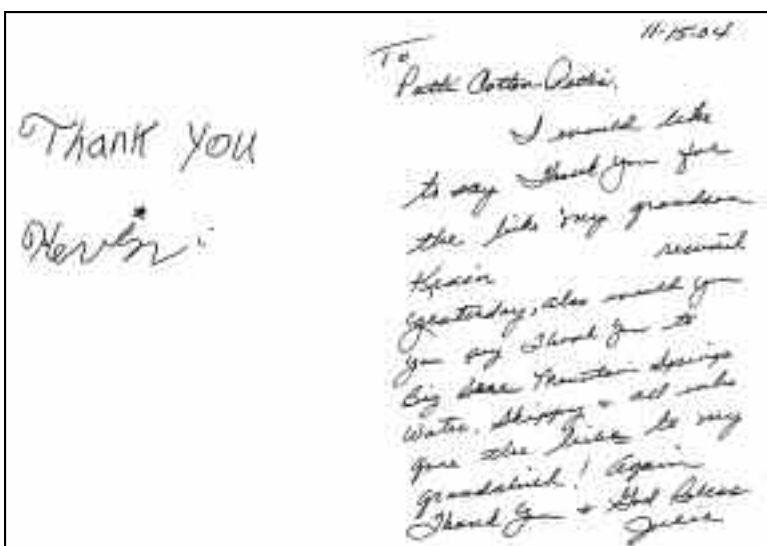 Thank You
Kevin
11-15-04
To
Patti Cotton Pettis,
I would like
to say Thank you for
the bike my grandson
Kevin received
yesterday, also would you
you say Thank You to
Big Bear Mountain Springs
Water, Skippy + all who
gave the bikes to my
grandchild! Again
Thank You + God Bless